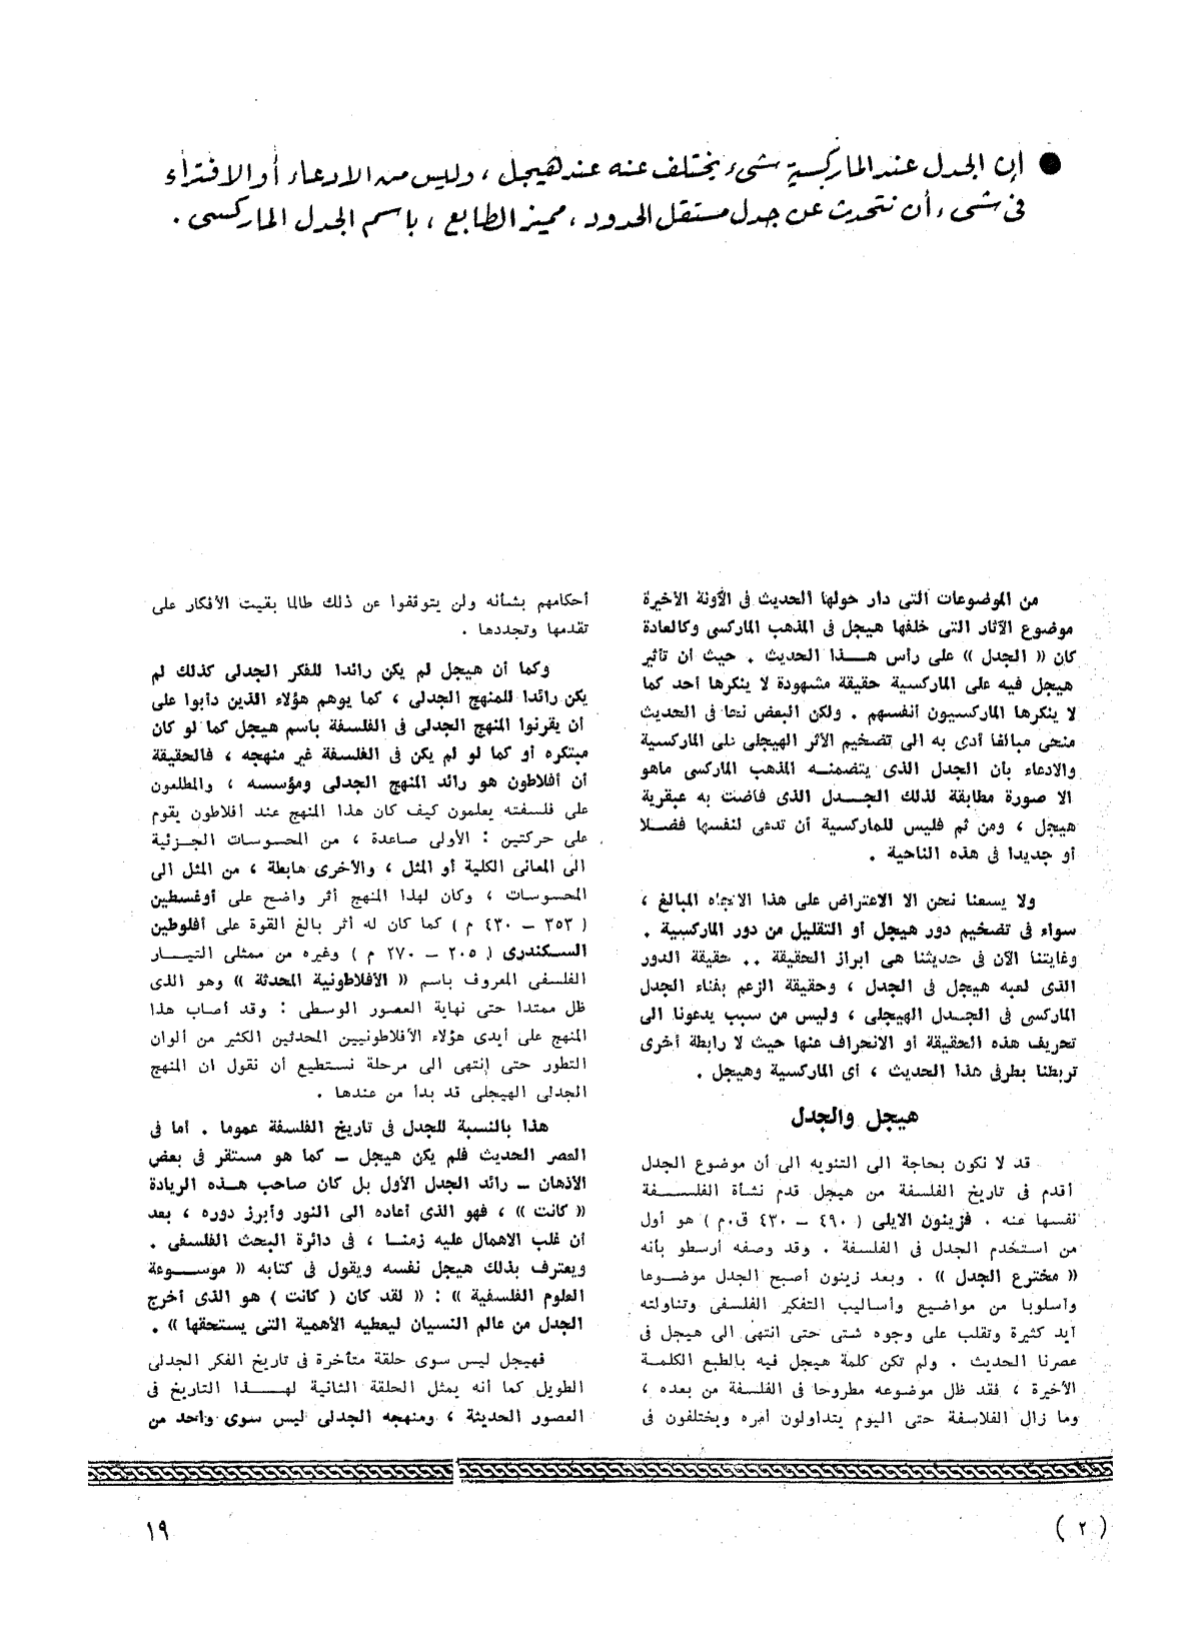 ● إن الجدل عند الماركسية شىء يختلف عنه عند هيجل ، وليس من الادعاء أو الافتراء
فى شىء ، أن نتحدث عن جدل مستقل الحدود ، مميز الطابع ، باسم الجدل الماركسى .
من الموضوعات التى دار حولها الحديث فى الآونة الأخيرة
موضوع الآثار التى خلفها هيجل فى المذهب الماركسى وكالعادة
كان « الجدل » على رأس هــذا الحديث . حيث أن تأثير
هيجل فيه على الماركسية حقيقة مشهودة لا ينكرها أحد كما
لا ينكرها الماركسيون أنفسهم . ولكن البعض نحا فى الحديث
منحى مبالغا أدى به الى تضخيم الأثر الهيجلى على الماركسية
والادعاء بأن الجدل الذى يتضمنــه المذهب الماركسى ماهو
الا صورة مطابقة لذلك الجــدل الذى فاضت به عبقرية
هيجل ، ومن ثم فليس للماركسية أن تدعى لنفسها فضــلا
أو جديدا فى هذه الناحية .
ولا يسعنا نحن الا الاعتراض على هذا الاتجاه المبالغ ،
سواء فى تضخيم دور هيجل أو التقليل من دور الماركسية .
وغايتنا الآن فى حديثنا هى ابراز الحقيقة .. حقيقة الدور
الذى لعبه هيجل فى الجدل ، وحقيقة الزعم بفناء الجدل
الماركسى فى الجــدل الهيجلى ، وليس من سبب يدعونا الى
تحريف هذه الحقيقة أو الانحراف عنها حيث لا رابطة أخرى
تربطنا بطرفى هذا الحديث ، أى الماركسية وهيجل .
هيجل والجدل
قد لا نكون بحاجة الى التنويه الى أن موضوع الجدل
أقدم فى تاريخ الفلسفة من هيجل قدم نشأة الفلســفة
نفسها عنه . فزينون الايلى ( ٤٩٠ – ٤٣٠ ق.م ) هو أول
من استخدم الجدل فى الفلسفة . وقد وصفه أرسطو بأنه
« مخترع الجدل » . وبعد زينون أصبح الجدل موضــوعا
وأسلوبا من مواضيع وأساليب التفكير الفلسفى وتناولته
أيد كثيرة وتقلب على وجوه شتى حتى انتهى الى هيجل فى
عصرنا الحديث . ولم تكن كلمة هيجل فيه بالطبع الكلمــة
الأخيرة ، فقد ظل موضوعه مطروحا فى الفلسفة من بعده ،
وما زال الفلاسفة حتى اليوم يتداولون أمره ويختلفون فى
أحكامهم بشأنه ولن يتوقفوا عن ذلك طالما بقيت الأفكار على
تقدمها وتجددها .
وكما أن هيجل لم يكن رائدا للفكر الجدلى كذلك لم
يكن رائدا للمنهج الجدلى ، كما يوهم هؤلاء الذين دأبوا على
أن يقرنوا المنهج الجدلى فى الفلسفة باسم هيجل كما لو كان
مبتكره أو كما لو لم يكن فى الفلسفة غير منهجه ، فالحقيقة
أن أفلاطون هو رائد المنهج الجدلى ومؤسسه ، والمطلعون
على فلسفته يعلمون كيف كان هذا المنهج عند أفلاطون يقوم
على حركتين : الأولى صاعدة ، من المحسوسات الجــزئية
الى المعانى الكلية أو المثل ، والأخرى هابطة ، من المثل الى
المحسوسات ، وكان لهذا المنهج أثر واضح على أوغسطين
( ٣٥٣ – ٤٣٠ م ) كما كان له أثر بالغ القوة على أفلوطين
الســكندرى ( ٢٠٥ – ٢٧٠ م ) وغيره من ممثلى التيــار
الفلسفى المعروف باسم « الأفلاطونية المحدثة » وهو الذى
ظل ممتدا حتى نهاية العصور الوسطى : وقد أصاب هذا
المنهج على أيدى هؤلاء الأفلاطونيين المحدثين الكثير من ألوان
التطور حتى إنتهى الى مرحلة نستطيع أن نقول ان المنهج
الجدلى الهيجلى قد بدأ من عندها .
هذا بالنسبة للجدل فى تاريخ الفلسفة عموما . أما فى
العصر الحديث فلم يكن هيجل – كما هو مستقر فى بعض
الأذهان – رائد الجدل الأول بل كان صاحب هــذه الريادة
« كانت » ، فهو الذى أعاده الى النور وأبرز دوره ، بعد
أن غلب الاهمال عليه زمنــا ، فى دائرة البحث الفلسفى .
ويعترف بذلك هيجل نفسه ويقول فى كتابه « موســوعة
العلوم الفلسفية » : « لقد كان ( كانت ) هو الذى أخرج
الجدل من عالم النسيان ليعطيه الأهمية التى يستحقها » .
فهيجل ليس سوى حلقة متأخرة فى تاريخ الفكر الجدلى
الطويل كما أنه يمثل الحلقة الثانية لهــذا التاريخ فى
العصور الحديثة ، ومنهجه الجدلى ليس سوى واحد من
( ٢ )
١٩